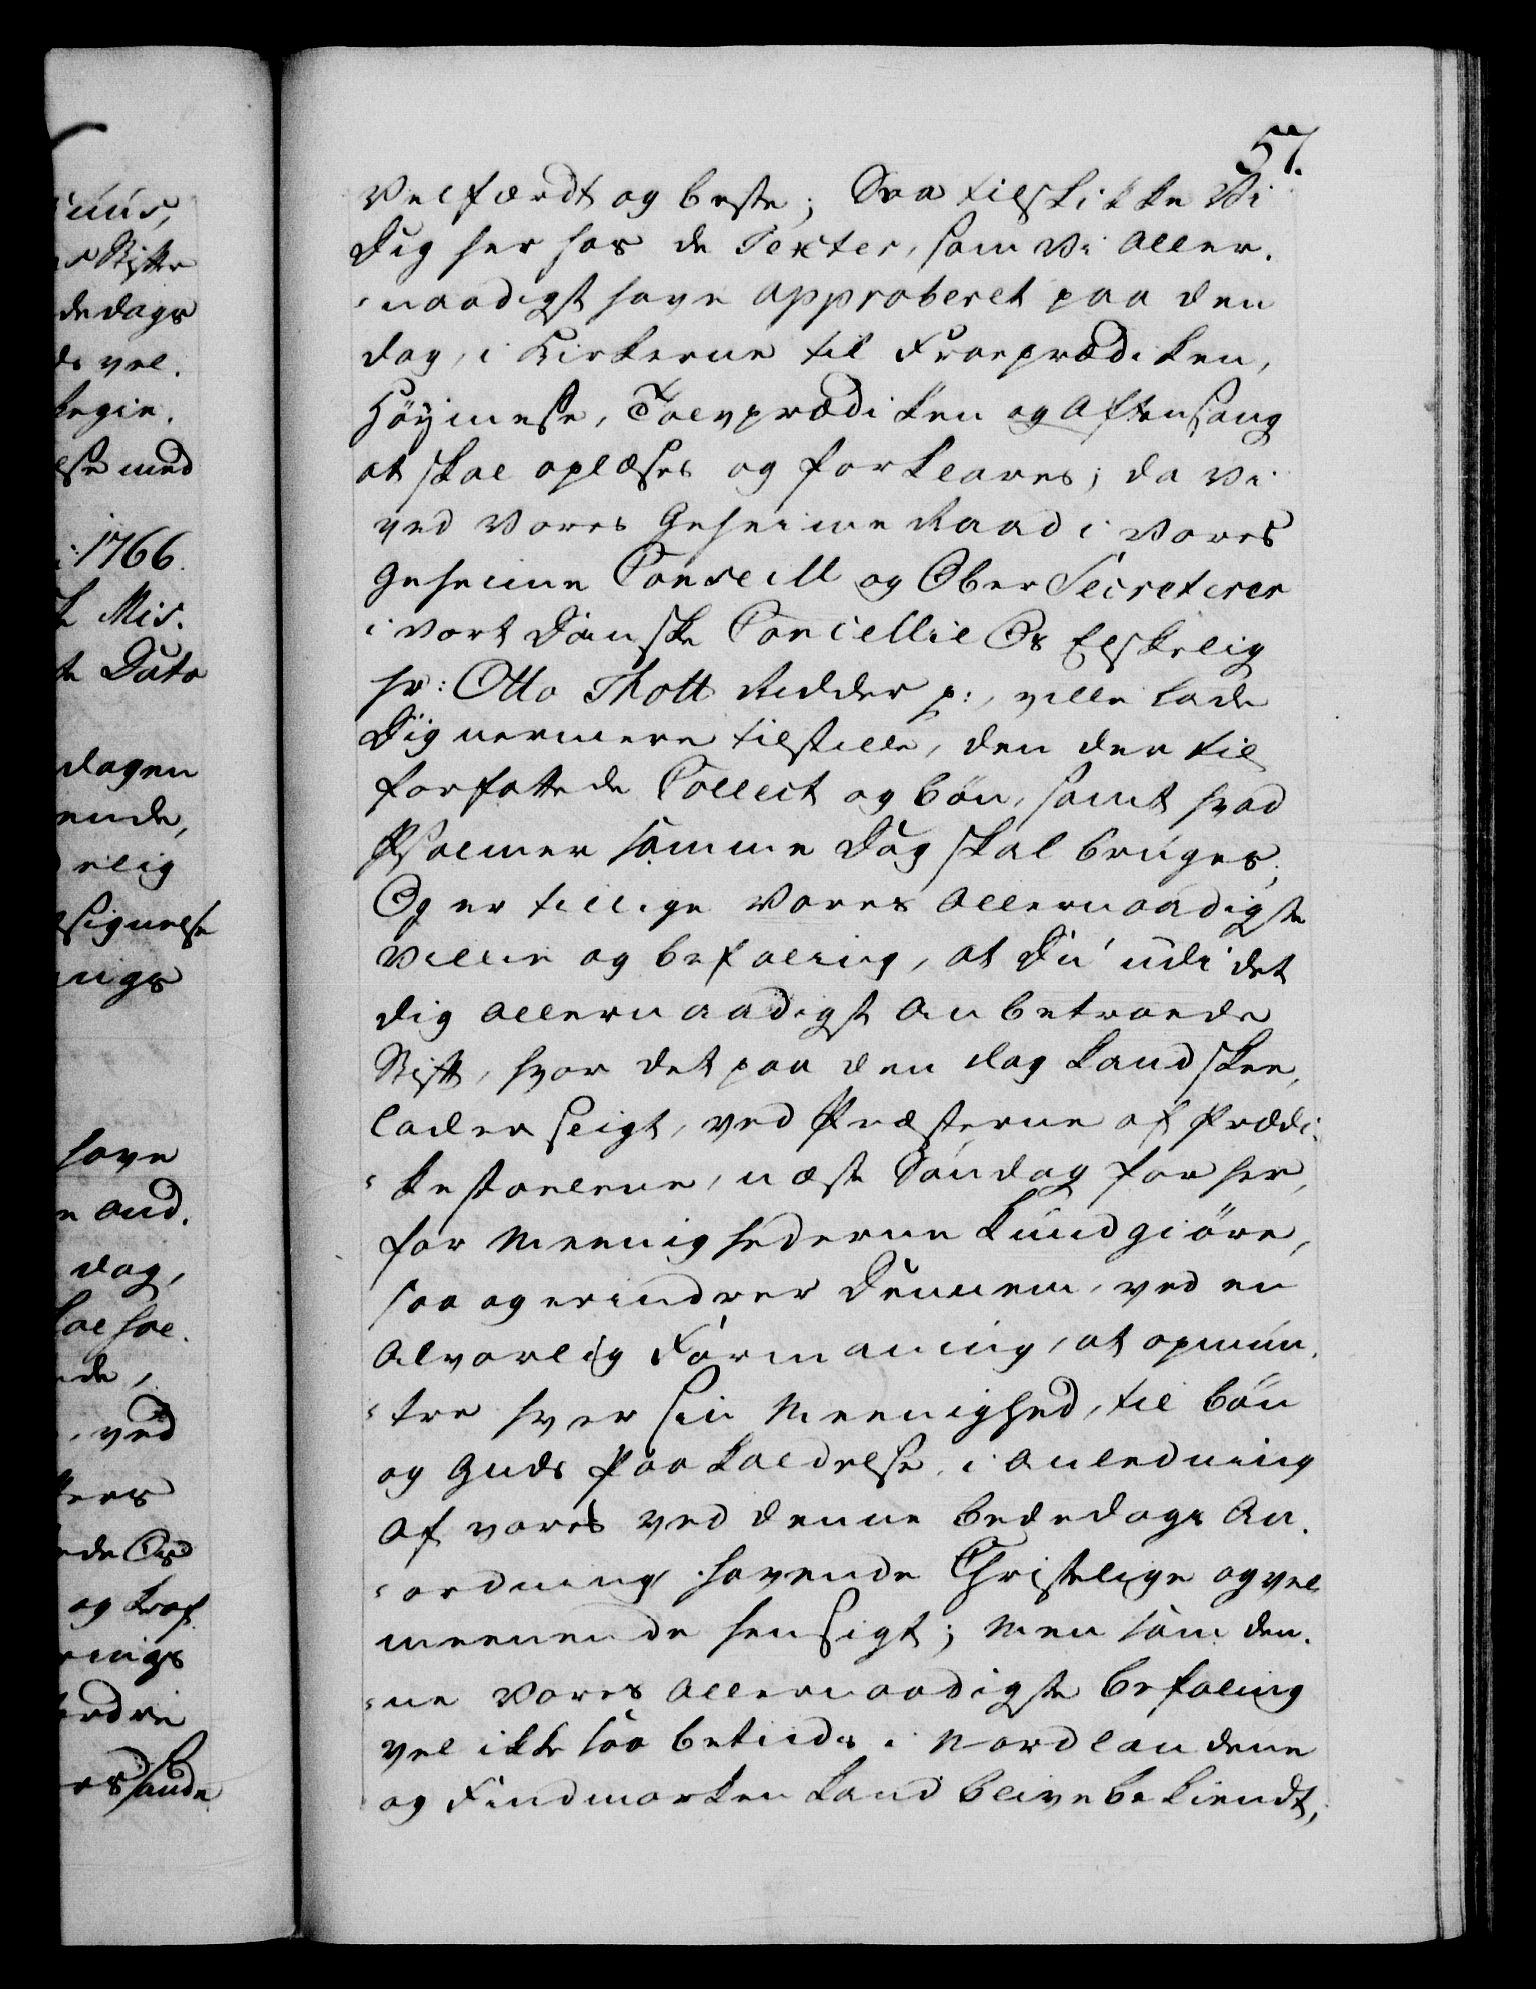 57.
Velfærdt og beste; Saa tilskikke Vi
Dig her hos de Texter, som Vi Aller-
naadigst have approberet paa den
dag, i Kirkerne til Froeprædiken,
Høymesse, Tolvprædiken og Aftensang
at skal oplæses og forklares; da Vi
ved Vores Geheime Raad i Vores
Geheime Conseill og Ober Secreterer
i vort Danske Cancellie Os Elskelig
Hr: Otto Thott Ridder p:, ville lade
Dig nermere tilstille, den der til
forfattede Collect og bøn, samt hvad
Psalmer samme Dag skal bruges;
Og er tillige Vores Allernaadigste
Villie og befaling, at Du udi det
dig Allernaadigst Anbetroede
Stift, hvor det paa den dag kand skee,
lader sligt, ved Præsterne af Prædi-
kestolene, næste Søndag for her,
for Meenighederne kundgiøre,
saa og erindrer Dennem, ved en
Alvorlig Formaning, at opmun-
tre hver sin Meenighed, til bøn
og Guds Paakaldelse i Anledning
Af vores ved denne Bededags An-
ordning havende Christelige og vel
meenende Hensigt; Men som den-
ne Vores Allernaadigste befaling
vel ikke saa betids i Nordlandene
og Findmarken kand blive bekiendt,
uus,
s Stifte
dedags
ds vel.
begie.
lse med
: 1766.
Mis.
te Dato
dagen
ende,
elig
signelse
ings
have
e And.
dag,
nde,
, ved
ters
ede Ord
og kraf
nings